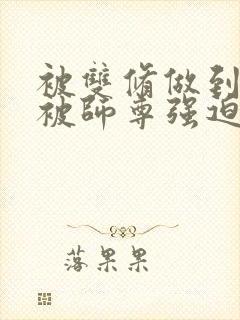 被雙脩做到
被師尊强迫
落果果